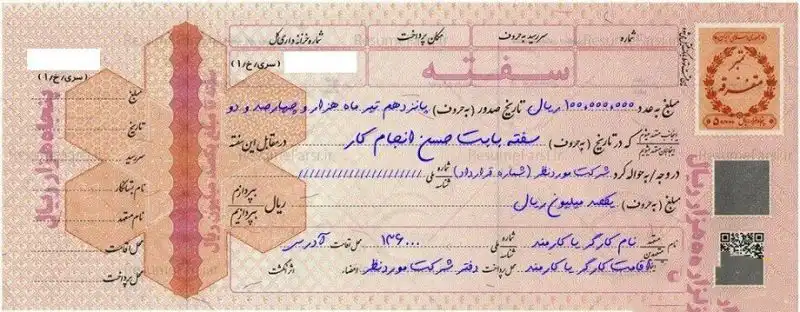 شماره
سررسید به حروف
مکان پرداخت
شماره خزانه داری کل
(سری/خ/۱)
سفته
مبلغ به عدد ۱۰۰,۰۰۰,۰۰۰ ریال تاریخ صدور (به حروف) پانزدهم تیر ماه هزار و چهارصد و دو
که در تاریخ (به حروف) سفته بابت حسن انجام کار در مقابل این سفته
در وجه/به حواله کرد شرکت موردنظر (شماره قرارداد) شماره ملی شناسه ////////////////
مبلغ (به حروف) یکصد میلیون ریال ریال بپردازم بپردازیم
نام متعهد متعهدین نام کارگر یا کارمند شماره ملی شناسه ۱۳۶۰۰۰ محل اقامت آدرسی
اقامت کارگر یا کارمند محل پرداخت دفتر شرکت موردنظر امضاء اثر انگشت
(سری/خ/۱)
مبلغ
تاریخ
سررسید
نام بستانکار
نام متعهد
محل اقامت
محل پرداخت
پنجاه هزار ریال
سفته تا مبلغ یکصد میلیون ریال
جمهوری اسلامی ایران
تمبر
متفرقه
ResumeFarsi.ir